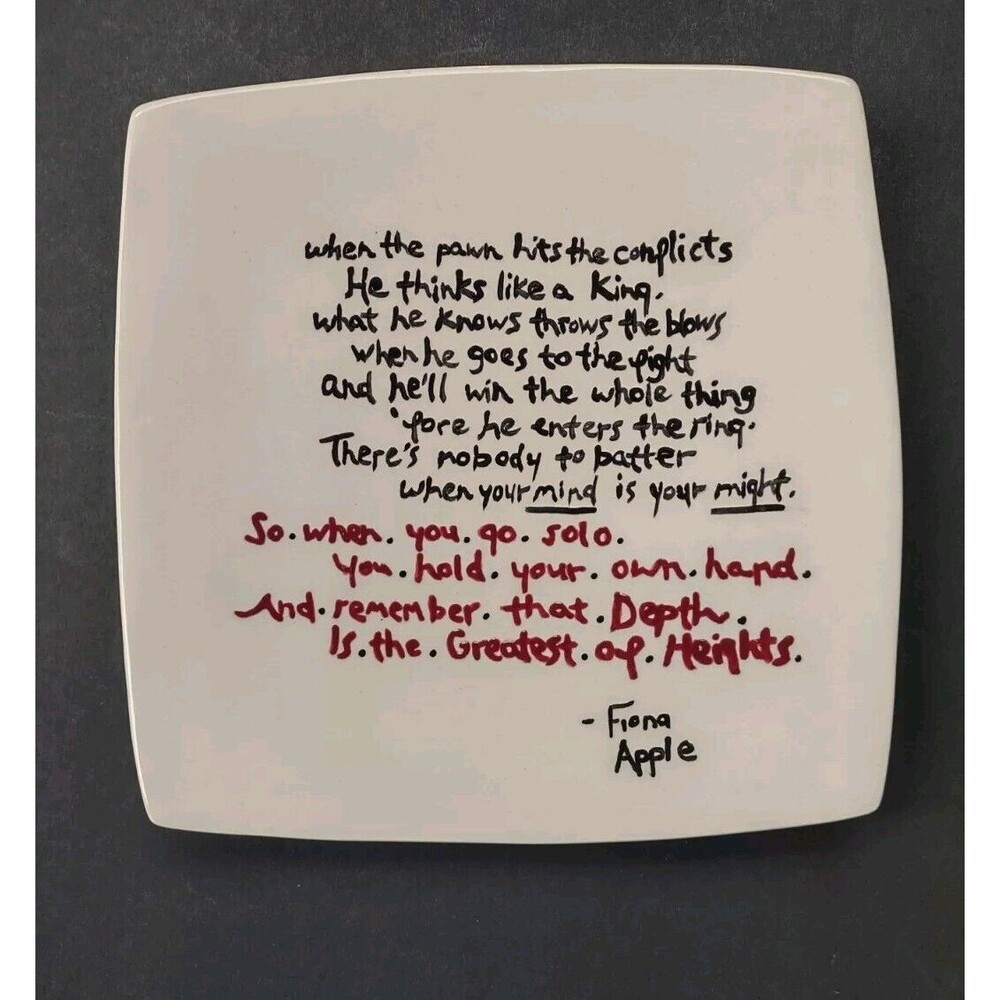 when the pawn hits the conflicts
He thinks like a King.
what he knows throws the blows
when he goes to the fight
and he'll win the whole thing
'fore he enters the ring.
There's nobody to batter
when your mind is your might.
So. when. you. go. solo.
You. hold. your. own. hand.
And. remember. that. Depth.
Is. the. Greatest. of. Heights.
- Fiona
Apple